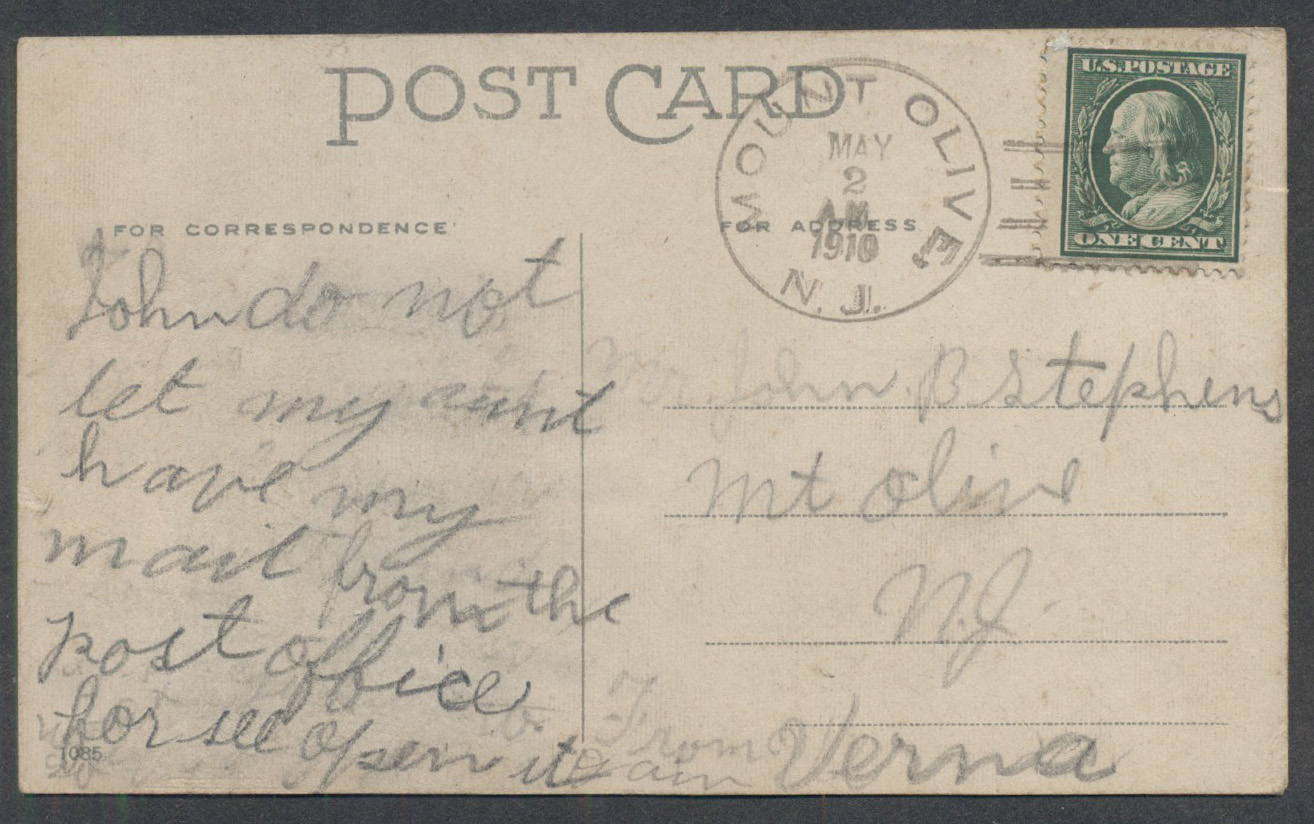 POST CARD
MOUNT OLIVE,
N.J.
MAY
2
A.M.
1910
U.S. POSTAGE
ONE CENT
FOR CORRESPONDENCE
FOR ADDRESS
John do not
let my aunt
have my
mail from the
post office
for see open it
Mr. John. B Stephens
Mt Olive
N.J.
From Verna
1085